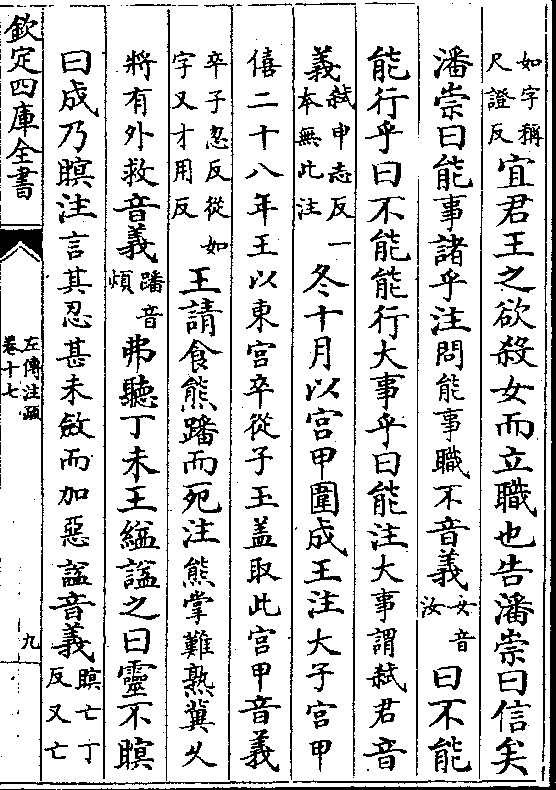 如字稱尺證反宜君王之欲殺女而立職也告潘崇曰信矣
潘崇曰能事諸乎注問能事職不音義女音汝曰不能
能行乎曰不能能行大事乎曰能注大事謂弑君音
義弑申志反一本無此注冬十月以宫甲圍成王注大子宫甲
僖二十八年王以東宫卒從子玉盖取此宫甲音義
卒子忽反從如字又才用反王請食熊蹯而死注熊掌難熟冀乆
將有外救音義蹯音煩弗聽丁未王縊諡之曰靈不瞑
曰成乃瞑注言其忍甚未斂而加惡諡音義瞑亡丁反又亡
欽定四庫全書
左傳注疏
卷十七
九